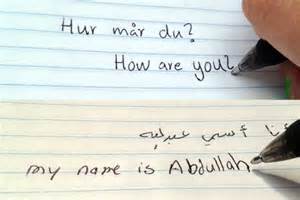 Hur mår du?
How are you?
أنا أسمي عبدلله
my name is Abdullah